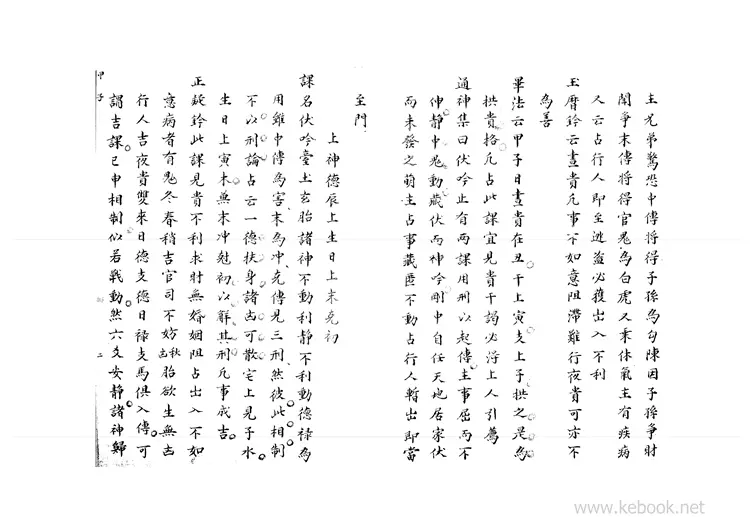 主兄弟驚恐中傳將得子孫為勾陳因子孫爭財
鬪爭末傳將得官鬼為白虎又乘休氣主有疾病
又云占行人即至逃盜必獲出入不利
玉曆鈐云晝貴凡事不如意阻滯難行夜貴可亦不
為善
畢法云甲子日晝貴在丑干上寅支上子拱之是為
拱貴格凡占此課宜見貴干謁必得上人引薦
通神集曰伏吟止有兩課用刑以起傳主事屈而不
伸靜中鬼動藏伏而神吟剛中自任天地居家伏
而未發之萌主占事藏匿不動占行人暫出即當
至門
上神德辰上生日上末克初
課名伏吟臺土玄胎諸神不動利靜不利動德祿為
用雖中傳為害末為冲克傳見三刑然彼此相制
不以刑論占云一德扶身諸凶可散宅上見子水
生日上寅木無末冲尅初以解其刑凡事成吉
正鈐此課見貴不利求財無婚姻阻占出入不如
意病者有鬼冬春稍吉官司不妨秋凶胎欲生無凶
行人吉夜貴雙來日德支德日祿支馬俱入傳可
謂吉課巳申相制似若戰動然六爻安靜諸神歸
甲子
二
www.kebook.net